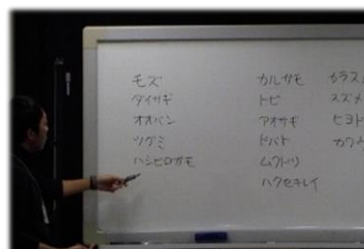 モズ
ダイサギ
オオバン
ツグミ
ハシビロガモ
カルガモ
トビ
アオサギ
ドバト
ムクドリ
ハクセキレイ
カラス
スズメ
ヒヨド
カワウ